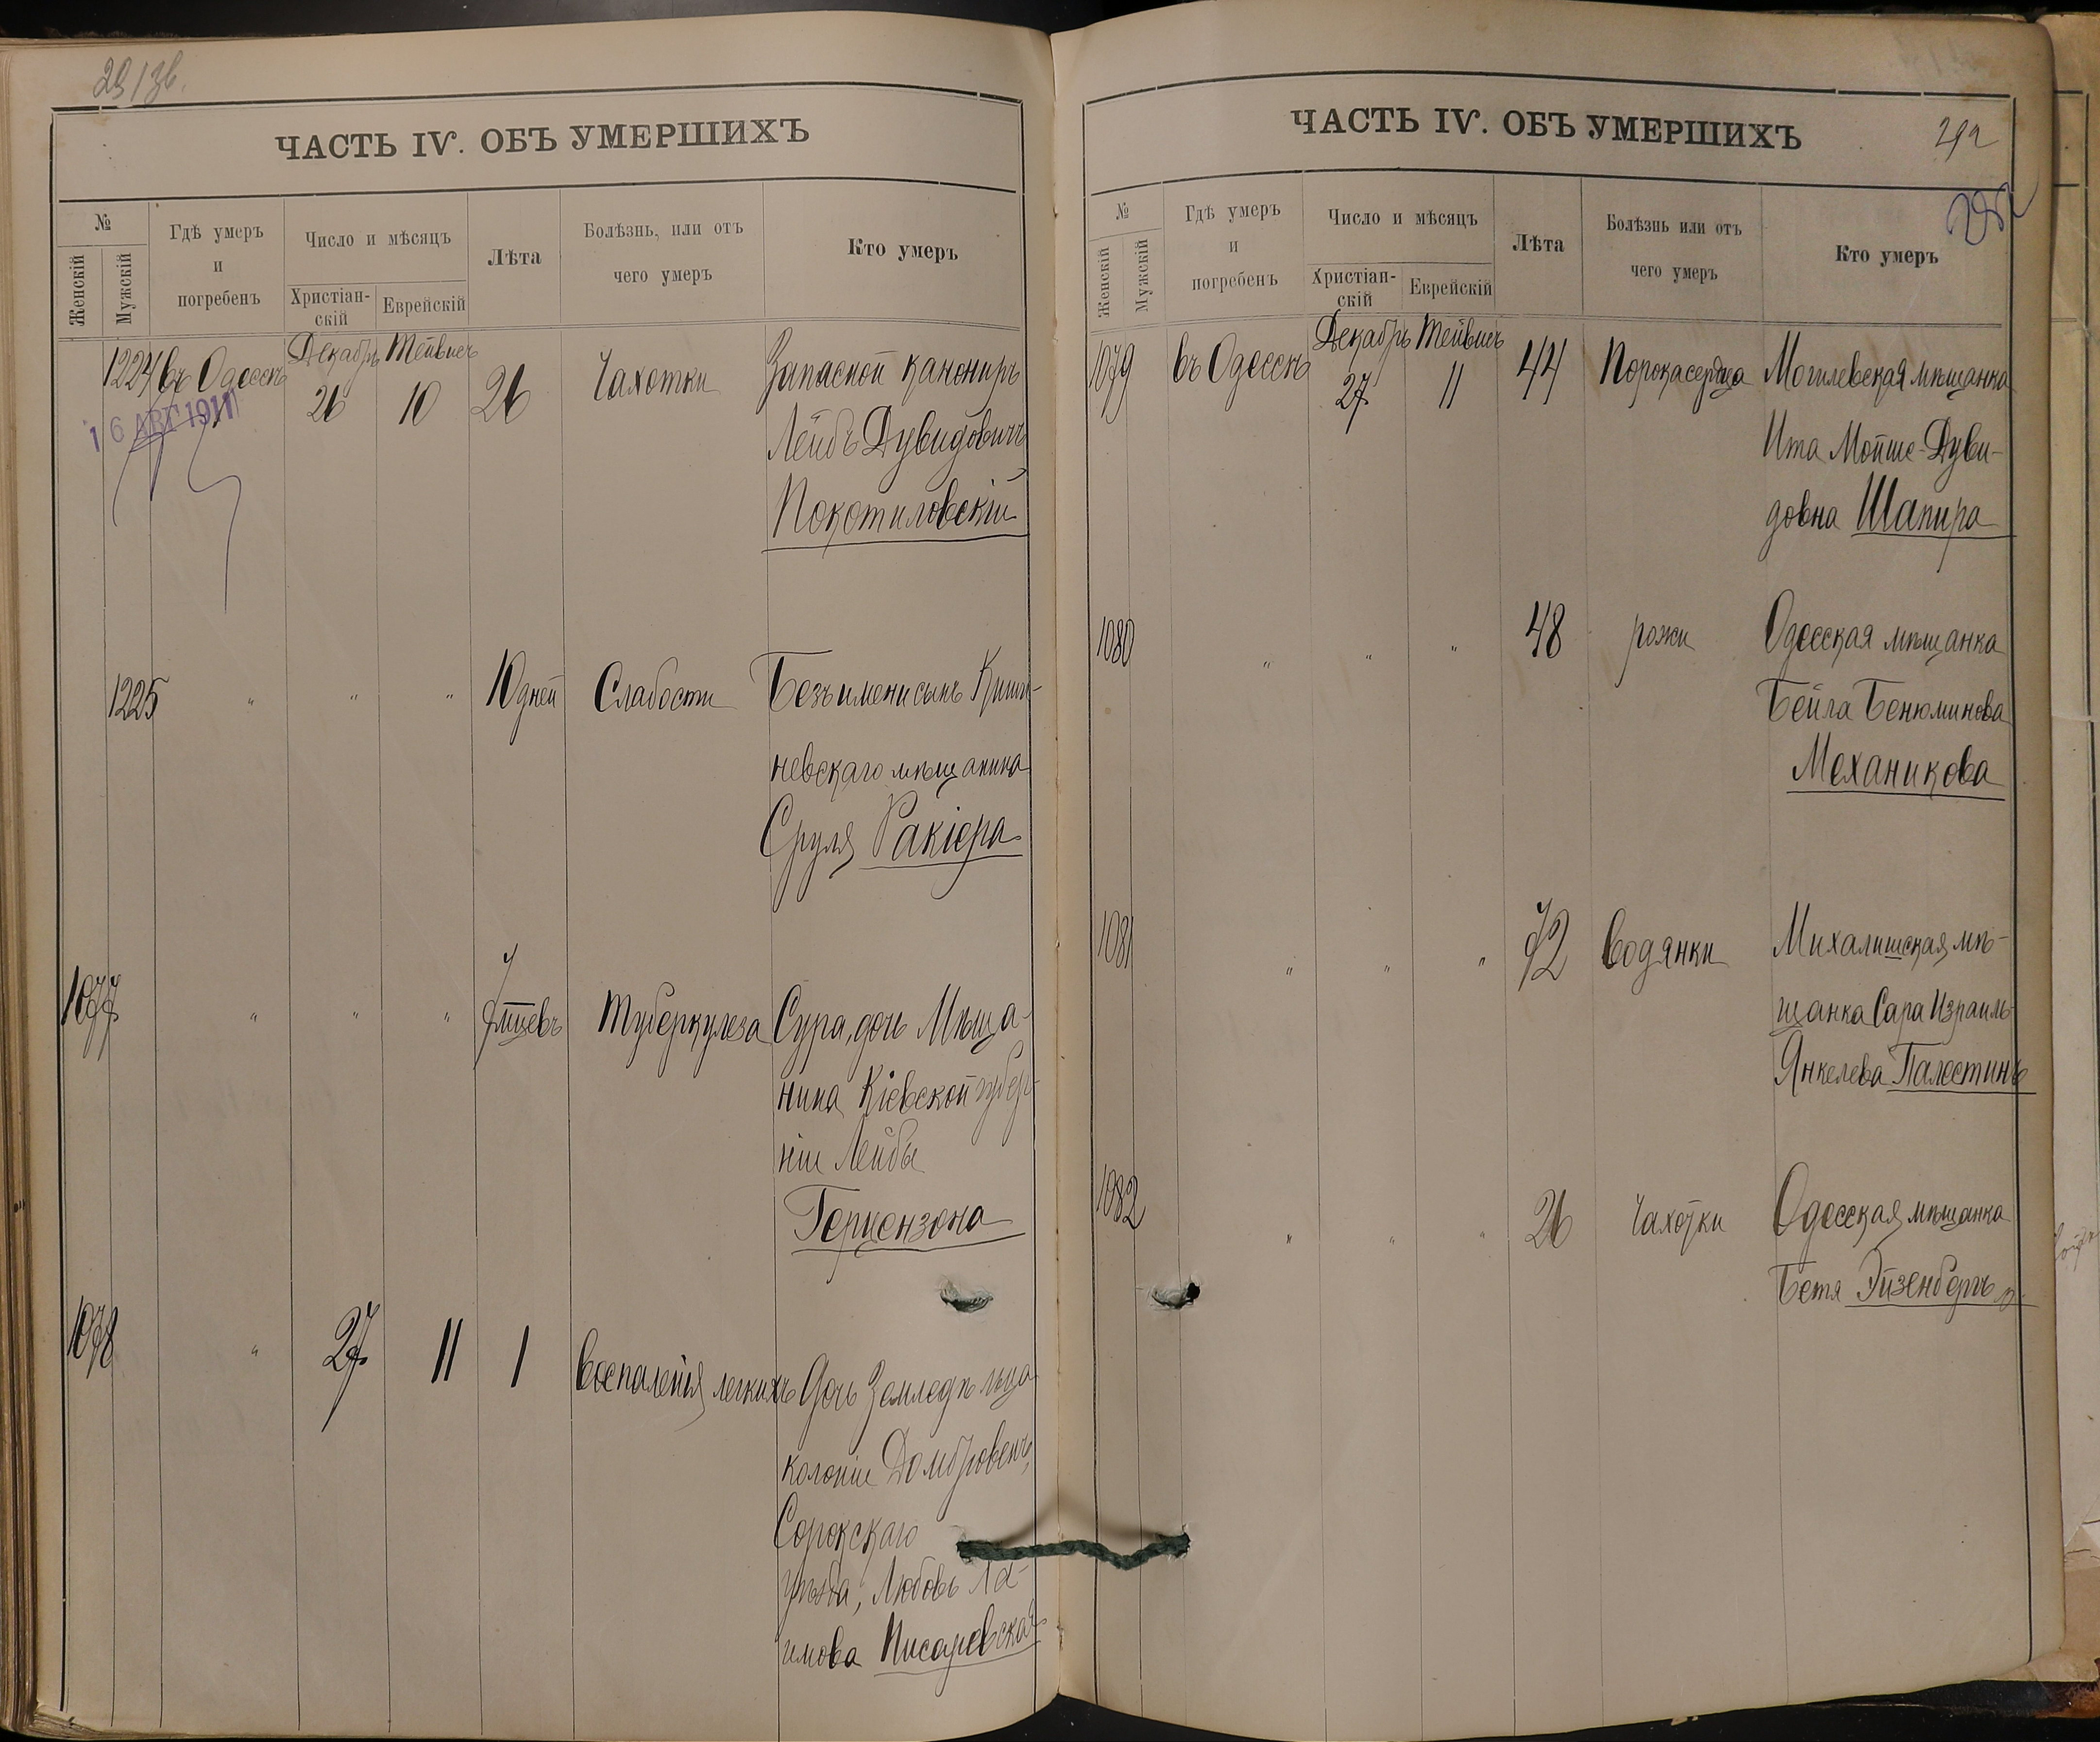 ЧАСТЬ IV. ОБЪ УМЕРШИХЪ
№
Женскій
Мужскій
Гдѣ умеръ
и
погребенъ
Число и мѣсяцъ
Христіан-
скій
Еврейскій
Лѣта
Болѣзнь, или отъ
чего умеръ
Кто умеръ
1224 въ Одессѣ Декабрь 26 Тейвисъ 10 26 Чахотки Запасной канониръ
16 АВГ 1911
Лейбъ Дувидовичъ
Покотиловскій
1225 " " " 10 дней Слабости Безъ имени сынъ Киши-
невскаго мѣщанина
Сруля Ракіера
1077 " " " 7 мцевъ Туберкулеза Сура, дочь Мѣща-
нина Кіевской губер-
ніи Лейбы
Герцензона
1078 " 27 11 1 Воспаленія легкихъ Дочь Земледѣльца
колоніи Домбровенъ,
Сорокскаго
уѣзда, Любовь
Писаревская
ЧАСТЬ IV. ОБЪ УМЕРШИХЪ
292
№
Женскій
Мужскій
Гдѣ умеръ
и
погребенъ
Число и мѣсяцъ
Христіан-
скій
Еврейскій
Лѣта
Болѣзнь или отъ
чего умеръ
Кто умеръ
1079 въ Одессѣ Декабрь 27 Тейвисъ 11 44 Порока сердца Могилевская мѣщанка
Ита Мойше-Дуви-
довна Шапира
1080 " " " 48 рожи Одесская мѣщанка
Бейла Бенюминова
Механикова
1081 " " " 72 Водянки Михалишская мѣ-
щанка Сара Израиль-
Янкелева Палестинъ
1082 " " " 26 Чахотки Одесская мѣщанка
Бетя Эйзенбергъ